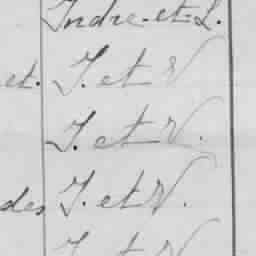 Indre-et-L.
et. I. et V
I. et V.
des I. et V.
I. et V.